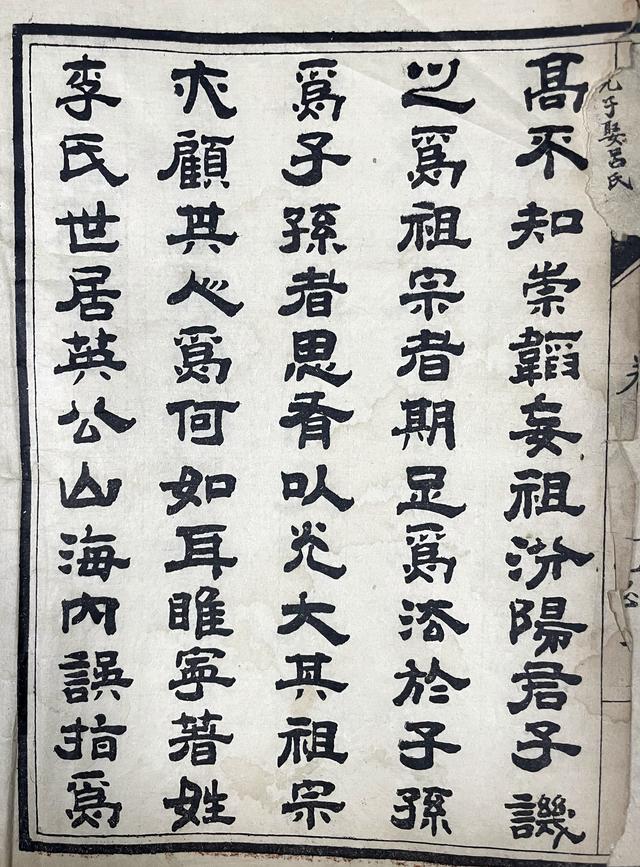 子娶呂氏
高不知崇韜妄祖汾陽君子譏
之爲祖宗者期足爲法於子孫
爲子孫者思有以光大其祖宗
夫顧其心爲何如耳睢寧著姓
李氏世居英公山海內誤指爲